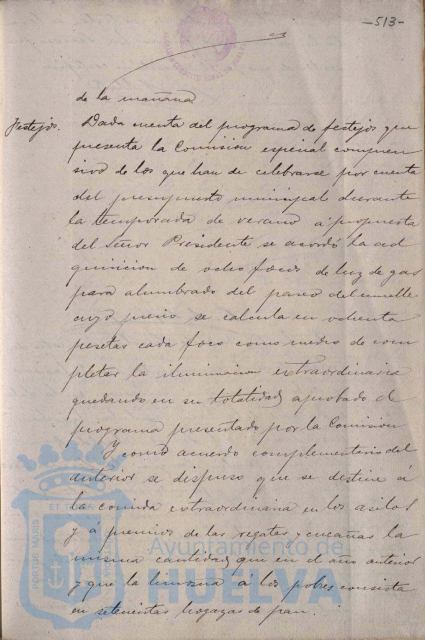 -513-
de la mañana
Festejos. Dada cuenta del programa de festejos que
presenta la Comisión especial compren
sivo de los que han de celebrarse por cuenta
del presupuesto municipal durante
la temporada de verano á propuesta
del Señor Presidente se acordó la ad
quisicion de ocho focos de luz de gas
para alumbrado del paseo del muelle
cuyo precio se calcula en ochenta
pesetas cada foco como medio de com
pletar la iluminacion extraordinaria
quedando en su totalidad aprobado el
programa presentado por la Comisión
Y como acuerdo complementario del
anterior se dispuso que se destine á
la comida extraordinaria en los asilos
y a premios de las regatas y cucañas la
misma cantidad que en el año anterior
y que la limosna á los pobres consista
en setecientas hogazas de pan.
Ayuntamiento de
HUELVA